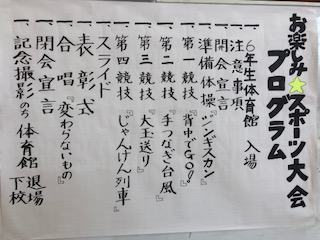 お楽しみ☆スポーツ大会
プログラム
一、6年生体育館 入場
一、注意事項
一、開会宣言
一、準備体操『ジンギスカン』
一、第一競技『背中でGO!』
一、第二競技『手つなぎ台風』
一、第三競技『大玉送り』
一、第四競技『じゃんけん列車』
一、スライド
一、表彰式
一、合唱『変わらないもの』
一、閉会宣言
一、記念撮影のち 体育館 退場
下校